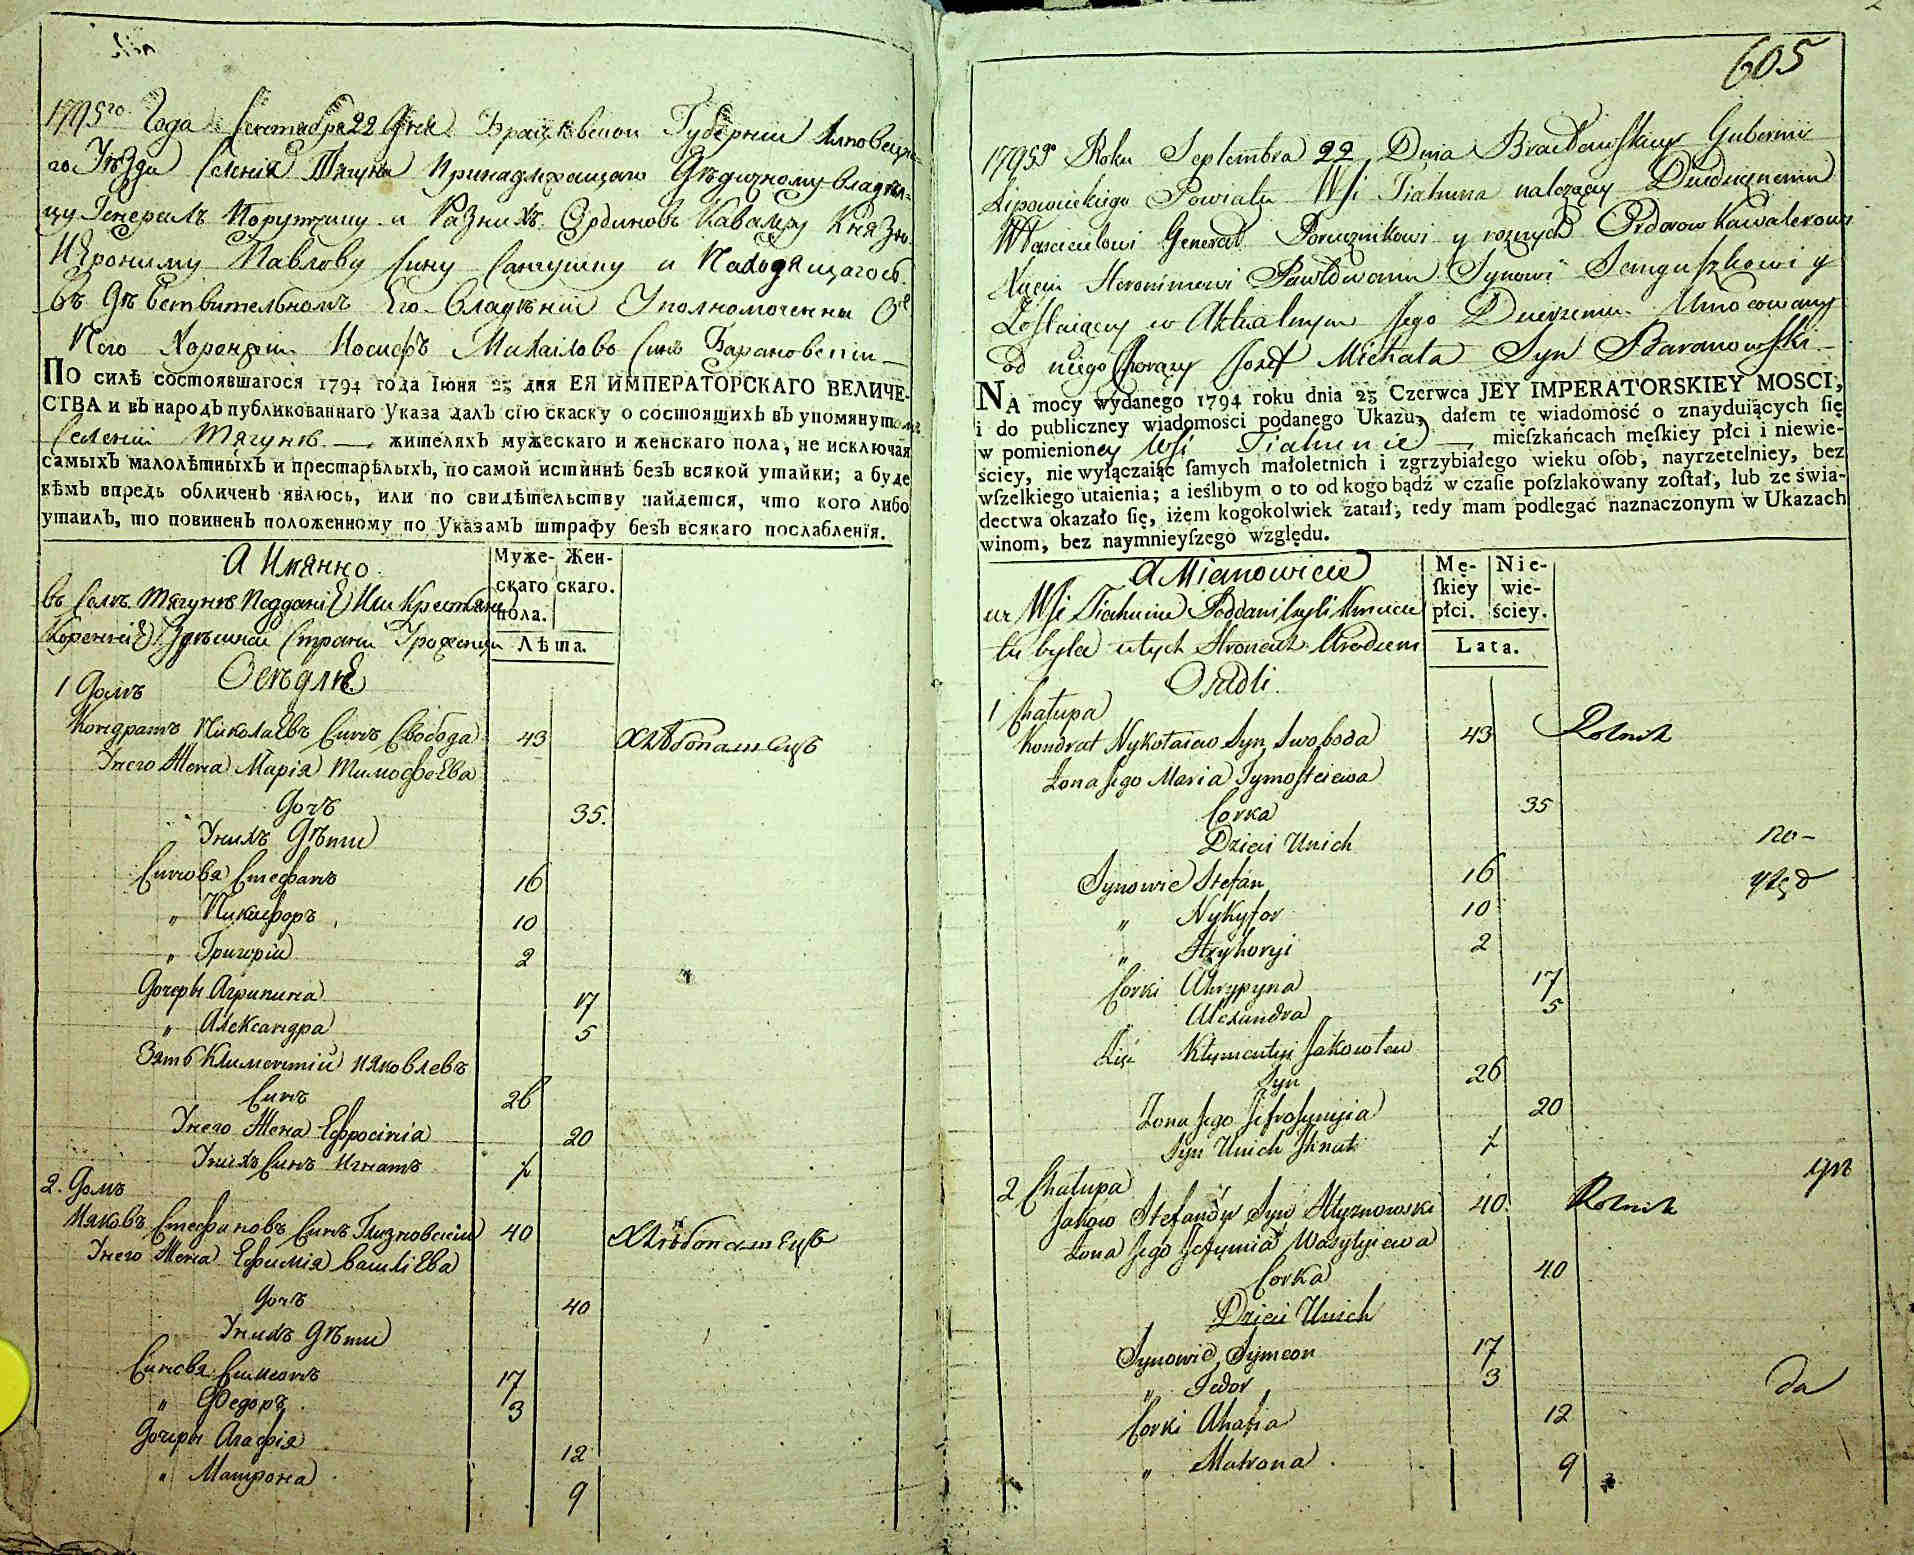 1795го Года Сентабра 22 Дня Брацковской Губернии Липовецка-
го Уѣзда Селенія Тягуна Принадлежащаго Дѣдичному Владѣл-
цу Генералъ Порутчику и Разнихъ Ординовъ Кавалеру Князю
Иерониму Павлову Сину Сангушку и Находящагось
въ Дѣйствительномъ Его Владѣніи Уполномоченни О
Него Хоронжіи Иосифъ Михаилово Синъ Барановскіи
ПО силѣ состоявшагося 1794 года Іюня 23 дня ЕЯ ИМПЕРАТОРСКАГО ВЕЛИЧЕ-
СТВА и въ народъ публикованнаго Указа далъ сію скаску о состоящихъ въ упомянутомъ
Селеніи Тягунѣ — , жителяхъ мужескаго и женскаго пола, не исключая
самыхъ малолѣтныхъ и престарѣлыхъ, по самой истиннѣ безъ всякой утайки; а буде
кѣмъ впредь обличенъ явлюсь, или по свидѣтельству найдется, что кого либо
утаилъ, то повиненъ положенному по Указамъ штрафу безъ всякаго послабленія.
А Имянно
Муже- Жен-
скаго скаго.
пола.
Лѣта.
въ Селѣ Тягунѣ Поддание Или Крестяне
Кореннie Здѣшней Страни Уроженци
Осѣдліе
1 Домъ
Кондратъ Николаевъ Синъ Свобода 43 Хлѣбопашецъ
Унего Жена Марія Тимофѣева
Дочъ 35.
Унихъ Дѣти
Синовя Стефанъ 16
" Никифоръ 10
" Григорій 2
Дочеры Агрипина 17
" Александра 5
Зять Климентій Ияковлевъ
Синъ 26
Унего Жена Ефросінія 20
Унихъ Синъ Игнатъ 1/2
2. Домъ
Ияковъ Стефановъ Синъ Глизновскій 40 Хлѣбопашецъ
Унего Жена Ефимія Василіева
Дочъ 40
Унихъ Дѣти
Синовя Симеонъ 17
" Федоръ 3
Дочеры Агафія 12
" Матрона 9
605
1795go Roku Septembra 22 Dnia Bracławskiey Gubernii
Lipowieckiego Powiatu Wsi Tiahuna należący Dziedzicznemu
Właścicielowi Generał Porucznikowi y roznych Orderow Kawalerowi
Xięciu Heronimowi Pawłowemu Synowi Sanguszkowi y
Zostaiącey w Aktualnym Jego Dzierżeniu Umocowany
od niego Chorąży Jozef Michała Syn Baranowski
NA mocy wydanego 1794 roku dnia 23 Czerwca JEY IMPERATORSKIEY MOSCI,
i do publiczney wiadomości podanego Ukazu, dałem tę wiadomość o znayduiących się
w pomienioney Wsi Tiahunie — , mieszkańcach męskiey płci i niewie-
ściey, nie wyłączaiąc samych małoletnich i zgrzybiałego wieku osób, nayrzetelniey, bez
wszelkiego utaienia; a ieślibym o to od kogo bądź w czasie poszlakowany został, lub ze świa-
dectwa okazało się, iżem kogokolwiek zataił, tedy mam podlegać naznaczonym w Ukazach
winom, bez naymnieyszego względu.
a Mianowicie
Mę- Nie-
skiey wie-
płci. ściey.
Lata.
we Wsi Tiahunie Poddani czyli Kmiecie
tu byłe utych Stronach Urodzeni
Osiadli
1 Chałupa
Kondrat Nykołaiew Syn Swoboda 43 Rolnik
Żona Jego Maria Tymofteiewa
Corka 35
Dzieci Unich
по-
Synowie Stefan 16
уѣзд
" Nykyfor 10
" Hryhoryi 2
Corki Ahrypyna 17
Alexandra 5
Zięć Kłymentyi Jakowlew
Syn 26
Żona Jego Jefrosynyia 20
Syn Unich Ihnat 1/2
2 Chałupa
Jakow Stefanów Syn Hłyznowski 40. Rolnik
Żona Jego Jefymia Wasylyiewa
Corka 40
Dzieci Unich
Synowie Symeon 17
" Fedor 3
Corki Ahafia 12
" Matrona 9